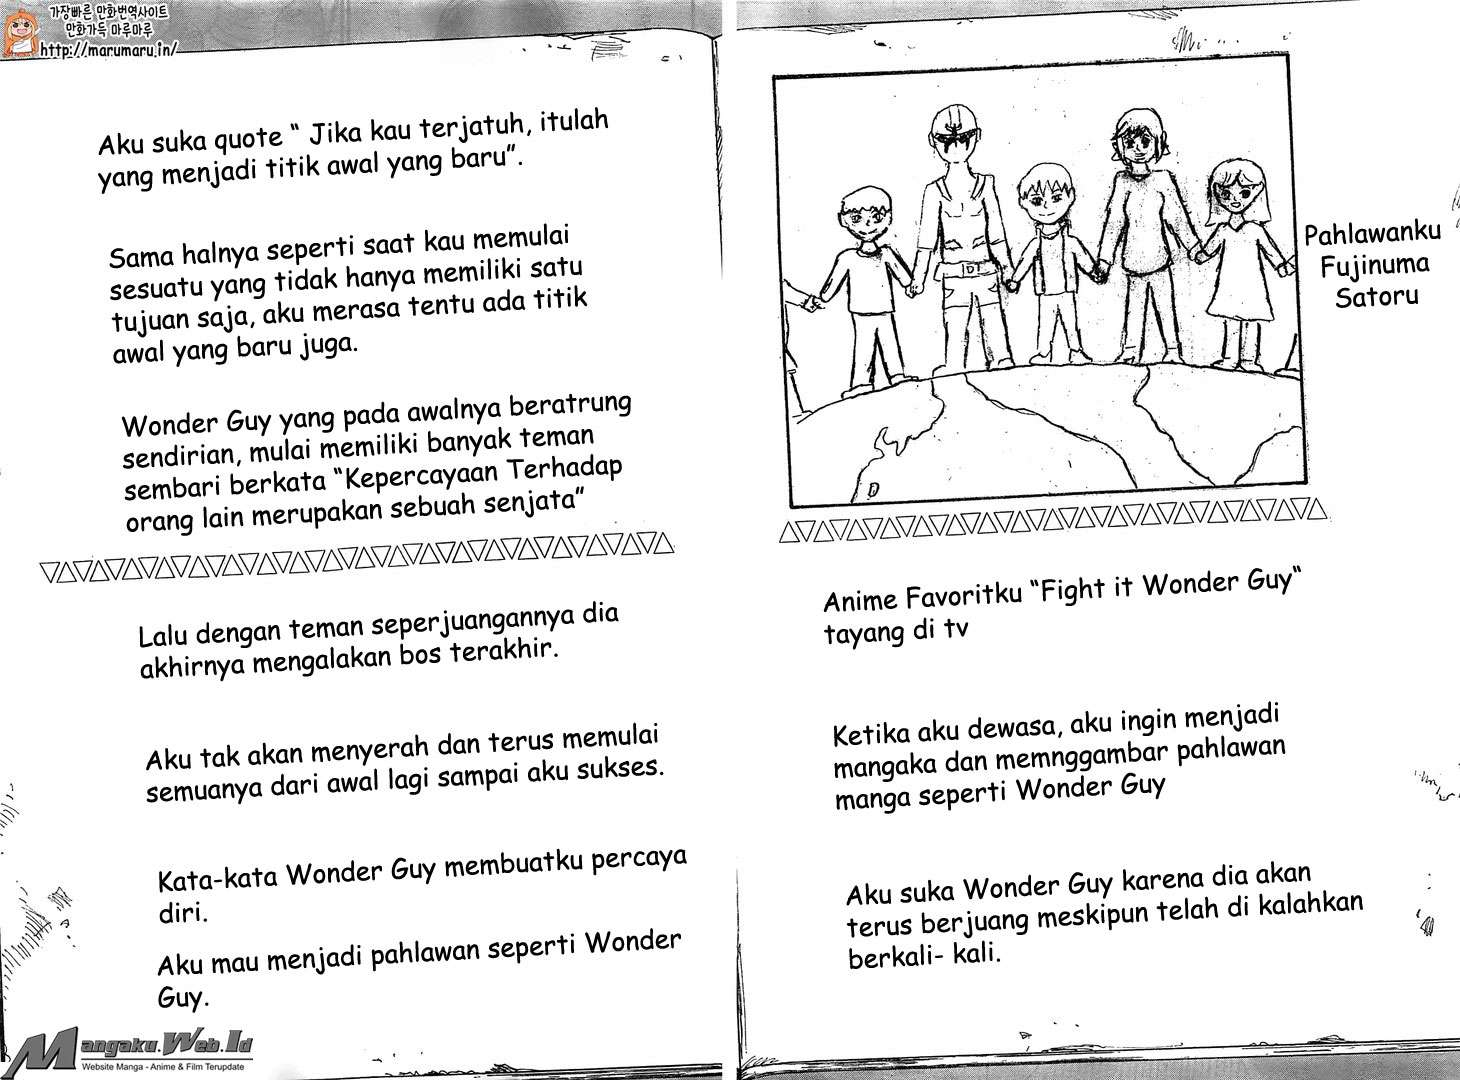 가장빠른 만화번역사이트
만화가득 마루마루
http://marumaru.in/
Pahlawanku
Fujinuma
Satoru
D
D
Anime Favoritku “Fight it Wonder Guy“
tayang di tv
Ketika aku dewasa, aku ingin menjadi
mangaka dan memnggambar pahlawan
manga seperti Wonder Guy
Aku suka Wonder Guy karena dia akan
terus berjuang meskipun telah di kalahkan
berkali- kali.
Aku suka quote “ Jika kau terjatuh, itulah
yang menjadi titik awal yang baru”.
Sama halnya seperti saat kau memulai
sesuatu yang tidak hanya memiliki satu
tujuan saja, aku merasa tentu ada titik
awal yang baru juga.
Wonder Guy yang pada awalnya beratrung
sendirian, mulai memiliki banyak teman
sembari berkata “Kepercayaan Terhadap
orang lain merupakan sebuah senjata”
Lalu dengan teman seperjuangannya dia
akhirnya mengalakan bos terakhir.
Aku tak akan menyerah dan terus memulai
semuanya dari awal lagi sampai aku sukses.
Kata-kata Wonder Guy membuatku percaya
diri.
Aku mau menjadi pahlawan seperti Wonder
Guy.
Mangaku.Web.Id
Website Manga - Anime & Film Terupdate